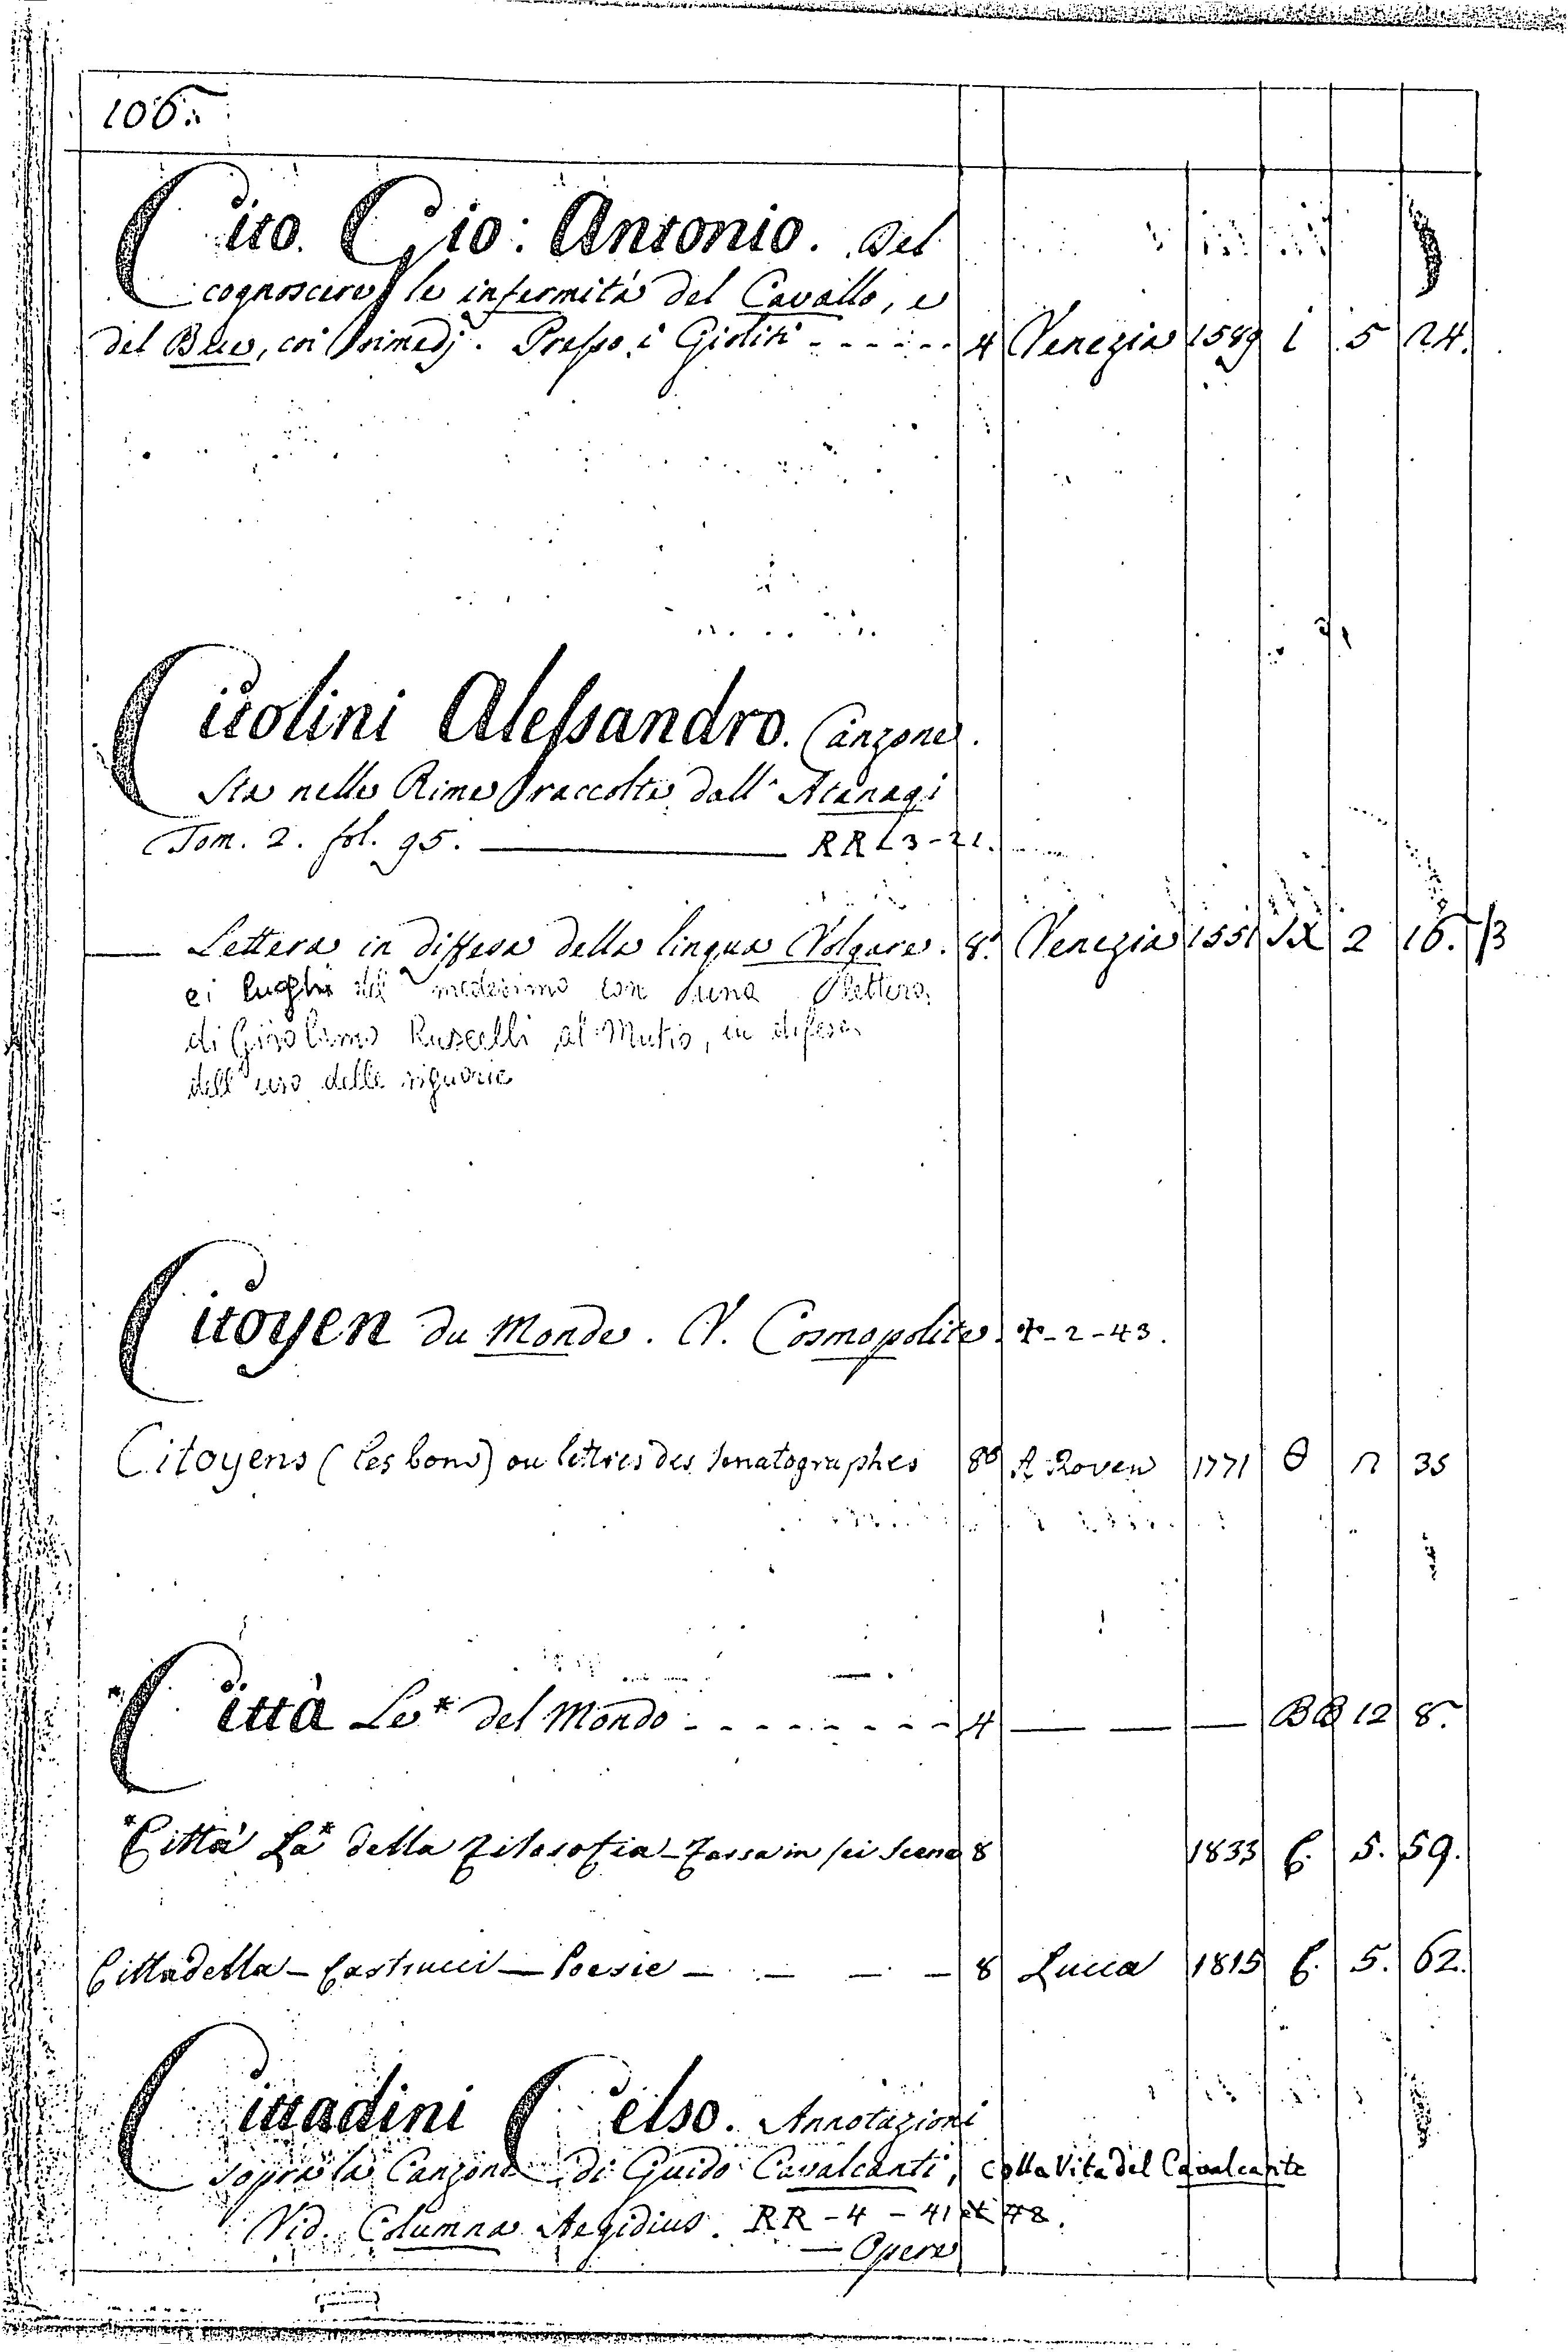 106.
Cito. Gio: Antonio. Del
cognoscere le infermità del Cavallo, e
del Bue, coi rimedj. Presso i Gioliti - - - - - - 4 Venezia 1589 i 5 24.
Citolini Alessandro. Canzone.
Sta nelle Rime raccolte dall' Atanagi
Tom. 2. fol. 95. ——— RR L 3 - 21.
— Lettera in diffesa della lingua Volgare. 8. Venezia 1551 IX 2 16. /3
e i luoghi del medesimo con una lettera
di Girolamo Ruscelli al Mutio, in difesa
dell' uso delle signorie
Citoyen du Monde. V. Cosmopolite. - 2 - 43.
Citoyens (les bons) ou lettres des senatographes 8º A Roven 1771 θ n 35
*Città Le* del Mondo - - - - - - - - - 4 — — — BB 12 8.
*Città La* della Filosofia - Farsa in sei Scene 8 1833 E. 5. 59.
Cittadella - Castrucci — Poesie — — — — 8 Lucca 1815 E. 5. 62.
Cittadini Celso. Annotazioni
sopra la Canzone di Guido Cavalcanti, colla Vita del Cavalcante
Vid. Columna Aegidius. RR - 4 - 41 et 48.
— Opere